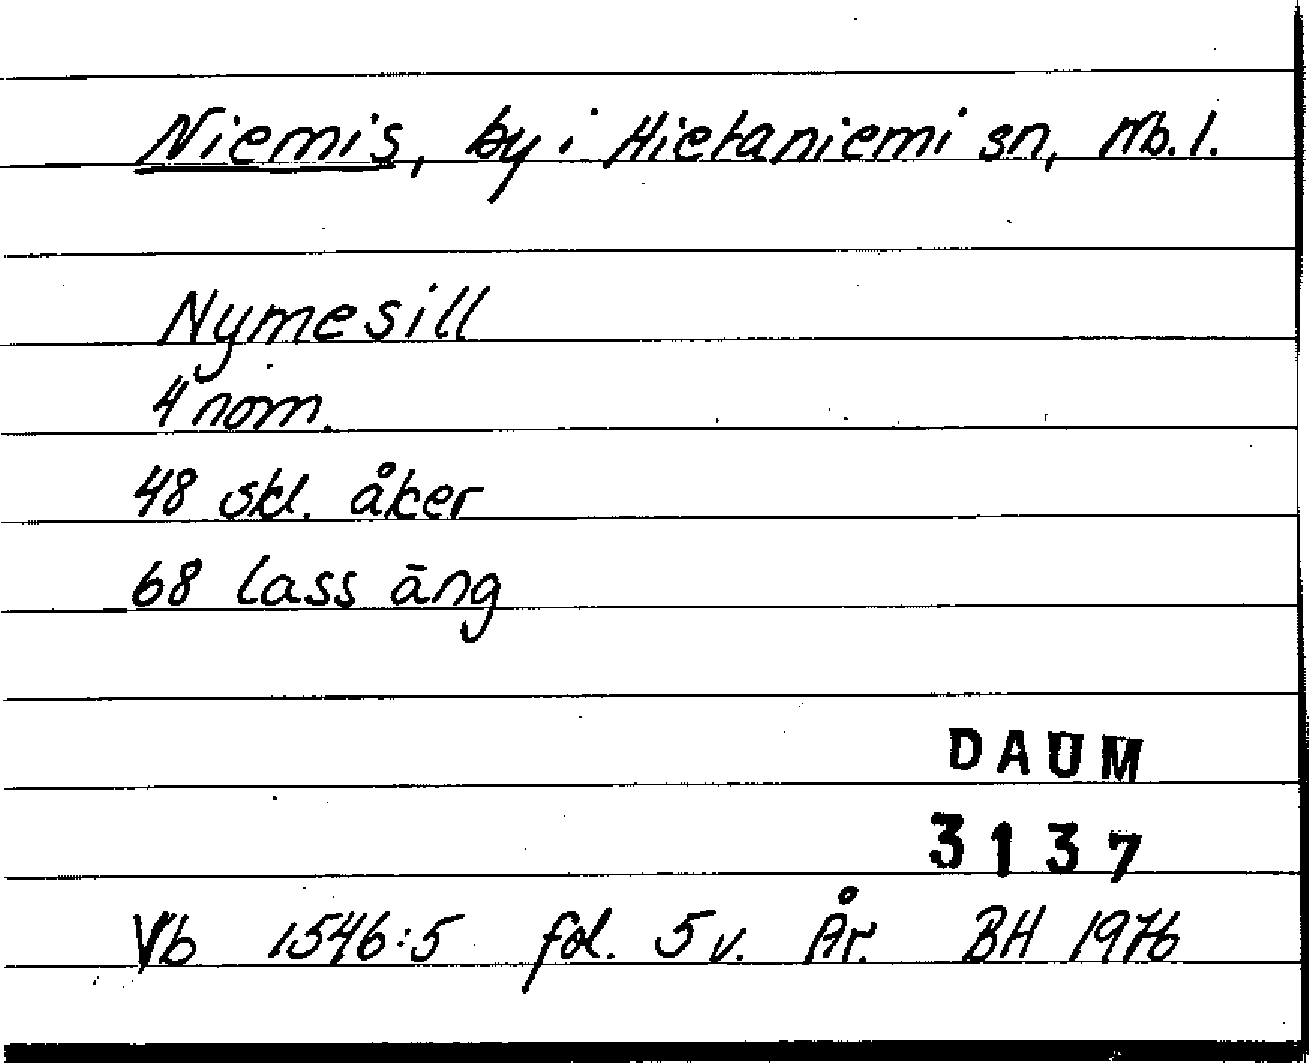 Niemis, by i Hietaniemi sn, Nb. l.
Nymesill
4 nom.
48 skl. åker
68 lass äng
DAUM
3137
Vb 1546:5 fol. 5 v. År. BH 1976